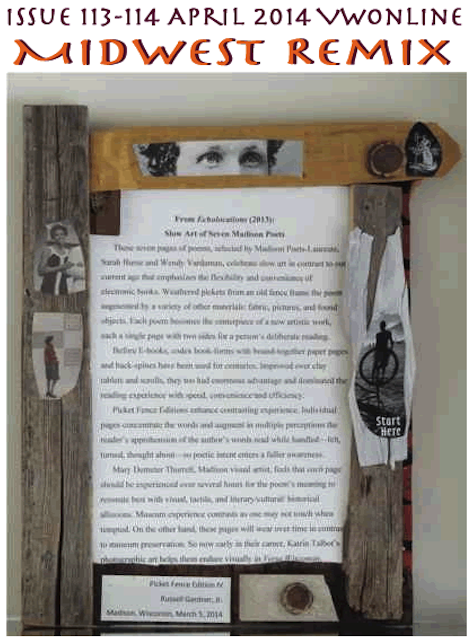 ISSUE 113-114 APRIL 2014 VWONLINE
MIDWEST REMIX
From Echolocations (2013):
Slow Art of Seven Madison Poets
These seven pages of poems, selected by Madison Poets-Laureate,
Sarah Busse and Wendy Vardaman, celebrate slow art in contrast to our
current age that emphasizes the flexibility and convenience of
electronic books. Weathered pickets from an old fence frame the poem
augmented by a variety of other materials: fabric, pictures, and found
objects. Each poem becomes the centerpiece of a new artistic work,
each a single page with two sides for a person's deliberate reading.
Before E-books, codex book-forms with bound-together paper pages
and back-spines have been used for centuries. Improved over clay
tablets and scrolls, they too had enormous advantage and dominated the
reading experience with speed, convenience and efficiency.
Picket Fence Editions enhance contrasting experience. Individual
pages concentrate the words and augment in multiple perceptions the
reader's apprehension of the author's words read while handled—felt,
turned, thought about—so poetic intent enters a fuller awareness.
Mary Demeter Thorrell, Madison visual artist, feels that each page
should be experienced over several hours for the poem's meaning to
resonate best with visual, tactile, and literary/cultural/ historical
allusions. Museum experience contrasts as one may not touch when
tempted. On the other hand, these pages will wear over time in contrast
to museum preservation. So now early in their career, Katrin Talbot's
photographic art helps them endure visually in Verse Wisconsin.
Start
Here
Picket Fence Edition IV
Russell Gardner, Jr.
Madison, Wisconsin, March 5, 2014